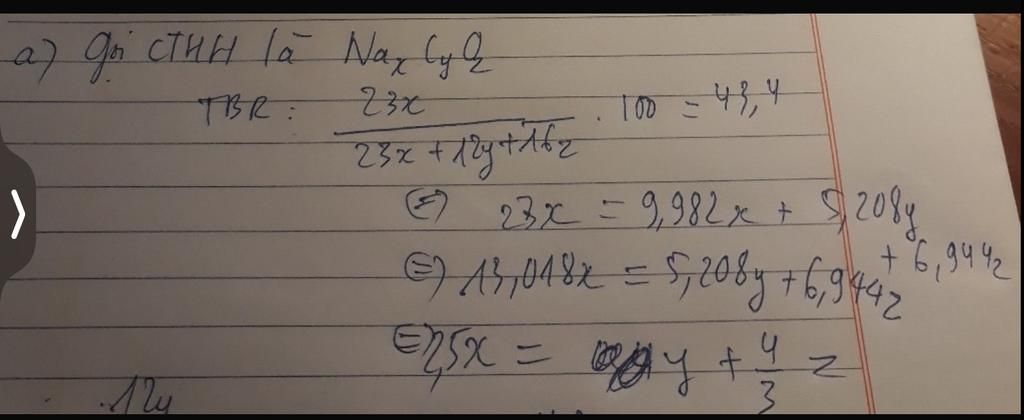 a) Gọi CTHH là NaxCyOz
TBR: 23x / (23x + 12y + 16z) . 100 = 43,4
⇔ 23x = 9,982x + 5,208y + 6,944z
⇔ 13,018x = 5,208y + 6,944z
⇔ 2,5x = y + 4/3 z
12y